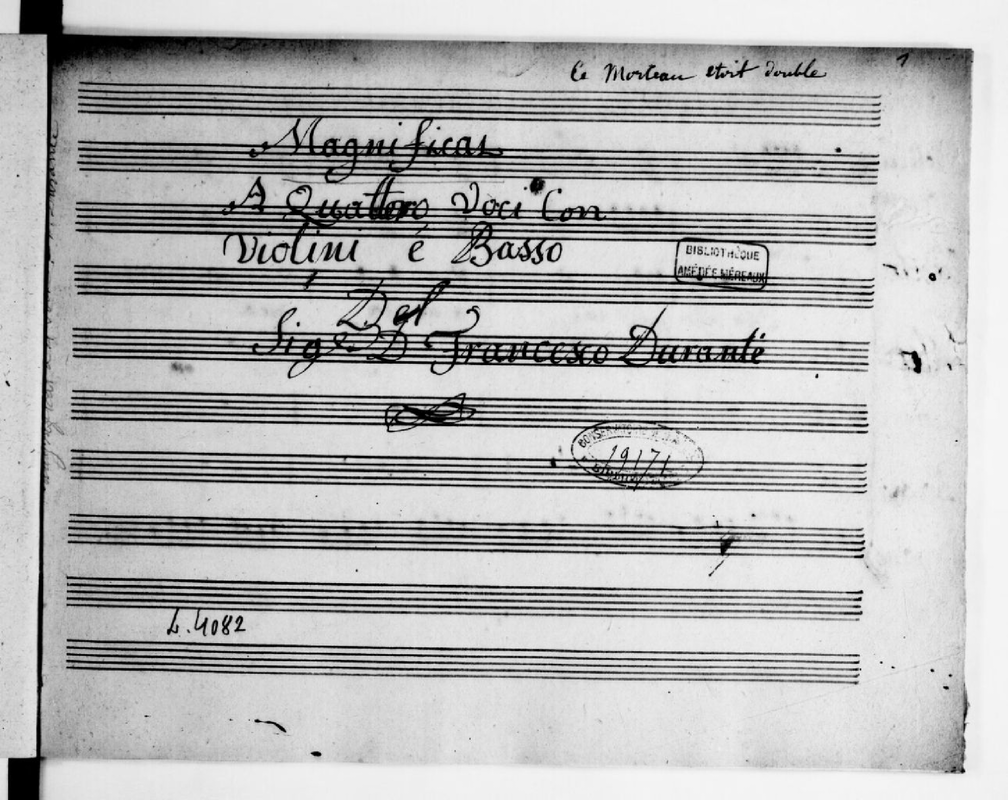 Ce Morceau etoit double
1
Magnificat
A Quattro Voci Con
Violini é Basso
BIBLIOTHÈQUE
AMÉDÉE MÉREAUX
Del
Sigr. D Francesco Duranté
CONSERVATOIRE
19171
L. 4082